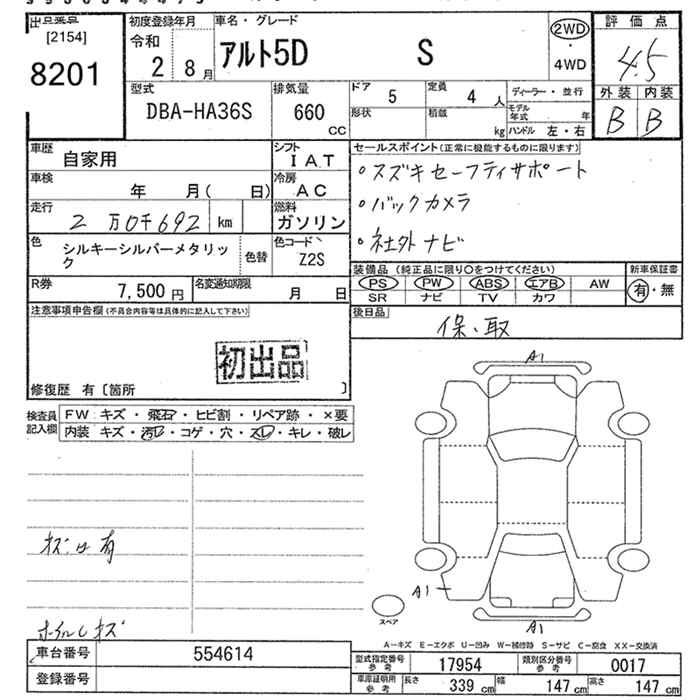 [2154]
8201
初度登録年月
令和
2 8月
車名・グレード
アルト5D S
2WD
4WD
評価点
4.5
外装 内装
B B
型式
DBA-HA36S
排気量
660
cc
ドア
5
定員
4 人
形状
積載
kg
ディーラー・並行
モデル年式 年
ハンドル 左・右
車歴
自家用
シフト
I A T
車検
年 月( 日)
冷房
A C
走行
2万0千692 km
燃料
ガソリン
色
シルキーシルバーメタリック
色替
色コード
Z2S
R券
7,500 円
名変通知期限
月 日
セールスポイント(正常に機能するものに限ります)
・スズキセーフティサポート
・バックカメラ
・社外ナビ
装備品 (純正品に限り○をつけてください)
PS PW ABS エアB AW
SR ナビ TV カワ
新車保証書
有・無
後日品
保、取
注意事項申告欄(不具合内容等は具体的に記入して下さい)
初出品
修復歴 有〔箇所 〕
検査員記入欄
FW: キズ ・ 飛石 ・ ヒビ割 ・ リペア跡 ・ ×要
内装 キズ ・ 汚レ ・ コゲ ・ 穴 ・ スレ ・ キレ ・ 破レ
A1
キズ凹有
A1
スペア
A1
ホイルキズ
A−キズ E−エクボ U−凹み W−補修跡 S−サビ C−腐食 XX−交換済
車台番号
554614
登録番号
型式指定番号 参考
17954
類別区分番号 参考
0017
車庫証明用 参考
長さ 339 cm
幅 147 cm
高さ 147 cm